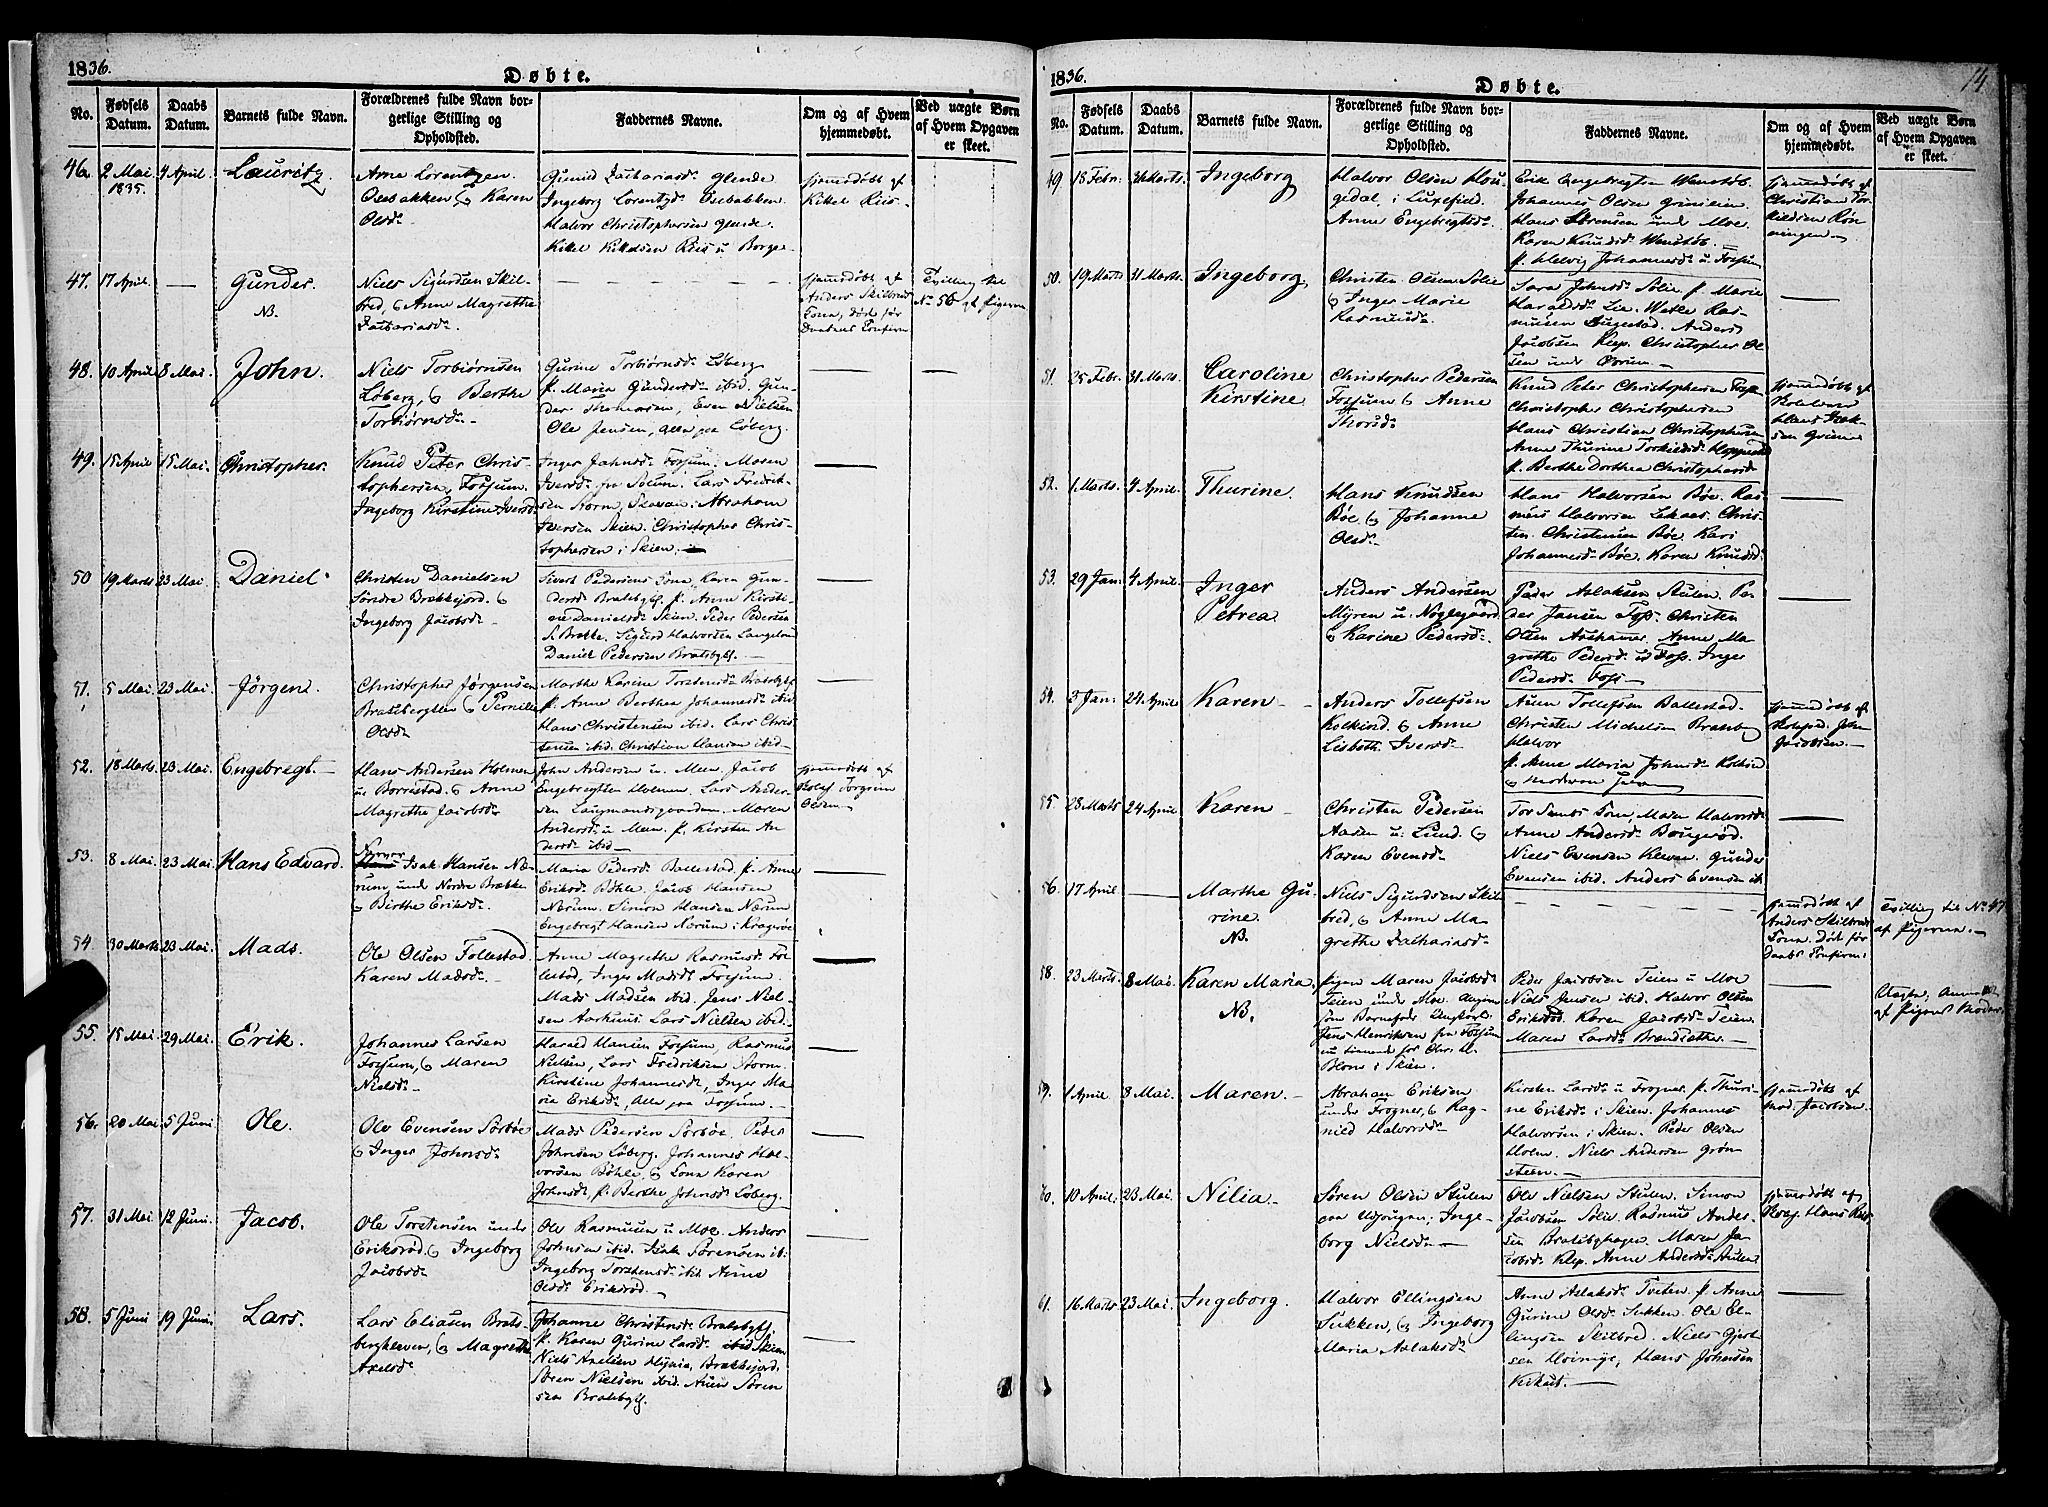 1836.
Døbte.
No.
Fødsels Datum.
Daabs Datum.
Barnets fulde Navn.
Forældrenes fulde Navn bor-
gerlige Stilling og
Opholdsted.
Faddernes Navne.
Om og af Hvem
hjemmedøbt.
Ved uægte Børn
af Hvem Opgaven
er skeet.
46. 2 Mai 1835. 4 April. Lauritz
Arne Lorentzen
Osebakken & Karen
Olsd.
Gunild Zachariasd. Glende
Ingeborg Lorentzd. Osebakken.
Halvor Christophersen Glende.
Kittel Kittelsen Riis u Borge
hjemmedøbt af
Kittel Riis
47. 17 April. — Gunder.
NB.
Niels Sigurdsen Skil-
bred, & Anne Magrethe
Zachariasd.
hjemmedøbt af
Anders Skilbreds
Kona, død før
Daabens Confirm
Tvilling til
No 56 af Pigerne
48. 10 April 8 Mai. John.
Niels Torbiørnsen
Løberg, & Berthe
Torbiørnsd.
Gurine Torbiørnsd. Løberg
p. Maria Gundersd. ibid. Gun-
der Thomesen, Even Nielsen
Ole Jensen, alle paa Løberg.
49. 15 April 15 Mai. Christopher.
Knud Peter Chris-
tophersen, Fossum.
Ingeborg Kirstine Iversd.
Inger Jahnsd. Fossum. Maren
Iversd. fra Solum. Lars Fredrik-
sen Storm, Abraham
Iversen Skien. Christopher Chris-
tophersen i Skien.
50 19 Marts 23 Mai. Daniel.
Christen Danielsen
Søndre Brekkejord. &
Ingeborg Jacobsd.
Sivert Pedersens Kona, Karen Gun-
dersd. Bratsbgkl. p. Anne Kirsti-
ne Danielsd. Skien. Peder Pedersen
S. Brække. Sigurd Halvorsen
Daniel Pedersen Bratsbgkl.
51. 5 Mai. 23 Mai. Jørgen.
Christopher Jørgensen
Bratsbergklev & Pernille
Olsd.
Marthe Karine Torstensd. Bratsbgkl
p. Anne Berthea Johannesd. ibid
Hans Christensen ibid. Lars Chris-
tensen ibid. Christian Hansen ibid.
52. 18 Marts. 23 Mai. Engebregt.
Hans Andersen Holmen
u. Borrestad. & Anne
Magrethe Jacobsd.
John Andersen u. Meen. Jacob
Engebregtsen Holmen. Lars Ander-
sen Laugmandsgaarden. Maren
Andersd. u Meen. p. Kirsten An-
dersd. ibid
hjemmedøbt af
Jørgen
Olsen
53. 8 Mai. 23 Mai. Hans Edvard.
Isak Hansen Næ-
rum, under Nordre Brække
& Birthe Eriksd.
Maria Pedersd. Ballestad. p. Anne
Eriksd. Bøhle. Jacob Hansen
Nærum. Simon Hansen Nærum
Engebregt Hansen Nærum i Kragerøe
54 30 Marts 23 Mai. Mads.
Ole Olsen Follestad.
Karen Madsd.
Anne Magrethe Rasmusd. Fol-
lestad, Inger Madsd. Fossum.
Mads Madsen ibid. Jens Niel-
sen Aarhuus. Lars Nielsen ibid.
55. 15 Mai. 29 Mai. Erik.
Johannes Larsen
Fossum, & Maren
Nielsd.
Harald Hansen Fossum, Rasmus
Nielsen, Lars Fredriksen Storm.
Kirstine Johannesd., Inger Ma-
ria Eriksd., alle paa Fossum.
56. 20 Mai. 5 Juni. Ole.
Ole Evensen Sørbøe
& Inger Johnsd.
Mads Pedersen Sørbøe. Peder
Johnsen Løberg. Johannes Hal-
vorsen Bøhle, & Kona Karen
Johnsd. p. Berthe Johnsd. Løberg.
57. 31 Mai. 12 Juni. Jacob.
Ole Torstensen under
Eriksrød. & Ingeborg
Jacobsd.
Ole Rasmusen u Moe. Anders
Johnsen ibid. Isak Sørensen ib:
Ingeborg Torstensd. ibid Anne
Olsd. Eriksrød.
58. 5 Juni 19 Juni. Lars.
Lars Eliasen Brats-
bergkleven, & Magrethe
Axelsd.
Johanne Christensd. Bratsbgkl.
p. Karen Gurine Larsd. Skien
Niels Axelsen Brækkejord.
Søren Nielsen ibid. Auen Søren
sen Bratsbgkl.
1836.
Døbte.
14
No.
Fødsels Datum.
Daabs Datum.
Barnets fulde Navn.
Forældrenes fulde Navn bor-
gerlige Stilling og
Opholdsted.
Faddernes Navne.
Om og af Hvem
hjemmedøbt.
Ved uægte Børn
af Hvem Opgaven
er skeet.
49. 18 Febr. 31 Marts. Ingeborg
Halvor Olsen Hou-
gedal, i Luxefjeld.
Anne Engebregtsd.
Erik Engebregtsen Wenstøb.
Johannes Olsen Grinilien.
Hans Sørensen under Moe.
Karen Knudsd. Wenstøb.
p. Helvig Johannesd. u Fossum
hjemmedøbt af
Christian Tor-
kildsen Røn-
ningen
50. 19 Marts 31 Marts. Ingeborg.
Christen Olsen Solie
& Inger Marie
Rasmusd.
Sara Johnsd. Solie p. Marie
Haraldsd. Lie. Wetle Ras-
musen Lugestad. Anders
Jacobsen Klep. Christopher Ol-
sen under
51. 25 Febr. 31 Marts. Caroline
Kirstine
Christopher Pedersen
Fossum & Anne
Thorsd.
Knud Peter Christophersen
Christopher Christophersen
Hans Christian Christophersen
Anne Thurine Torkildsd. Hoppestad
p. Berthe Dorthea Christophersd
hjemmedøbt af
Hans Isak-
sen
52. 1 Marts. 4 April. Thurine.
Hans Knudsen
Bøe. & Johanne
Olsd.
Hans Halvorsen Bøe. Ras-
mus Halvorsen Chris-
ten Christensen Bøe. Kari
Johannesd. Bøe. Karen Knudsd.
53. 29 Jan: 4 April. Inger
Petrea
Anders Andersen
Myren u. Nøglegaard
& Karine Pedersd.
Peder Aslaksen Stulen. Pe-
der Jansen Foss. Christen
Olsen Aashamer. Anne Ma-
grethe Pedersd. u Foss. Inger
Pedersd. Foss
54. 3 Jan: 24 April Karen
Anders Tollefsen
Kolkind. & Anne
Lisbeth Iversd.
Auen Tollefsen Ballestad.
Christen Michelsen Bratsbg
Halvor
p. Anne Maria Johnsd. Kolkind
& Moderen
hjemmedøbt af
John
Jacobsen.
55. 28 Marts 24 April Karen
Christen Pedersen
Aasen u: Lund. &
Karen Evensd.
Maren Halvorsd.
Anne Andersd. Bougerød.
Niels Evensen Kleven. Gunder
Evensen ibid. Anders Evensen ib
56. 17 April — Marthe Gu-
rine.
NB.
Niels Sigurdsen Skil-
bred, & Anne Ma-
grethe Zachariasd.
hjemmedøbt af
Anders Skilbreds
Kona. Død før
Daabs Confirm:
Tvilling til No 47
af Pigerne.
58. 23 Marts. 8 Mai. Karen Maria.
NB.
Pigen Maren Jacobsd.
Teien under Moe. Angiven
som Barnefader Ungkarl
Jens Henriksen fra Fossum
nu tienende for Christ.
Blom i Skien.
Peder Jacobsen Teien u Moe
Niels Jensen ibid. Halvor Olsen
Eriksrød. Karen Jacobsd. Teien.
Maren Larsd. Brændsæther.
Uægte; Anm:
af Pigens Moder.
59. 1 April 8 Mai. Maren.
Abraham Eriksen
under Frogner, & Rag-
nild Halvorsd.
Kirsten Larsd. u Frogner p. Thuri-
ne Eriksd. i Skien. Johannes
Halvorsen i Skien. Peder Olsen
Holm. Niels Andersen Grøn-
steen.
hjemmedøbt af
Mod. Jacobsen
60. 10 April. 23 Mai. Nilia.
Søren Olsen Stulen
paa Udjougen; Inge-
borg Nielsd.
Ole Nielsen Stulen. Simon
Jacobsen Solie. Rasmus Ander-
sen Bratsbghagen. Maren Ja-
cobsd. Klep. Anne Andersd. Stulen
hjemmedøbt af
Hans
61. 16 Marts 23 Mai. Ingeborg.
Halvor Ellingsen
Sukken, & Ingeborg
Maria Aslaksd.
Anne Aslaksd. Tveten p. Anne
Gurine Olsd. Sukken. Ole El-
lingsen Skilbred. Niels Gjert-
sen Hans Johnsen
Kikut.